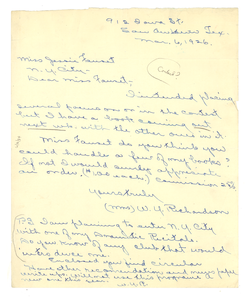 912 Iowa St.
San Antonio Tex.
Mar. 6, 1926.
Miss Jessie Fauset
N.Y. City.
Dear Miss Fauset:-
I intended placing
several poems on in the contest
but I have a book coming out
next wk, with the other ones in it.
Miss Fauset do you think you
could handle a few of my books?
If not I would surely appreciate
an order, ($1.00 each) Commission
Yours truly,
(Mrs) W. Y. Richardson
P.S. I am planning to enter N.Y. City
with one of my Dramatic Recitals.
Do you know of any club that would
introduce me.
Enclosed you find circular
Have other recommendations and many
new one this year. W.Y.R.